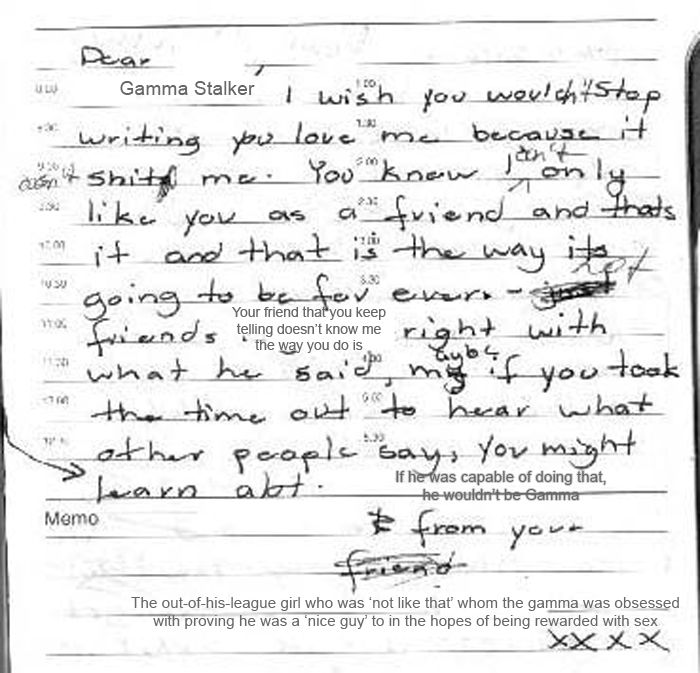 Dear ,
Gamma Stalker I wish you wouldn't Stop
writing you love me because it
doesn't shits me. You know I can't only
like you as a friend and thats
it and that is the way its
not
going to be for ever. -
Your friend that you keep
telling doesn't know me
the way you do is
friends right with
what he said, mayby if you took
the time out to hear what
other people say, you might
learn alot.
If he was capable of doing that,
he wouldn't be Gamma
Memo
from your
friend
The out-of-his-league girl who was 'not like that' whom the gamma was obsessed
with proving he was a 'nice guy' to in the hopes of being rewarded with sex
xxxx